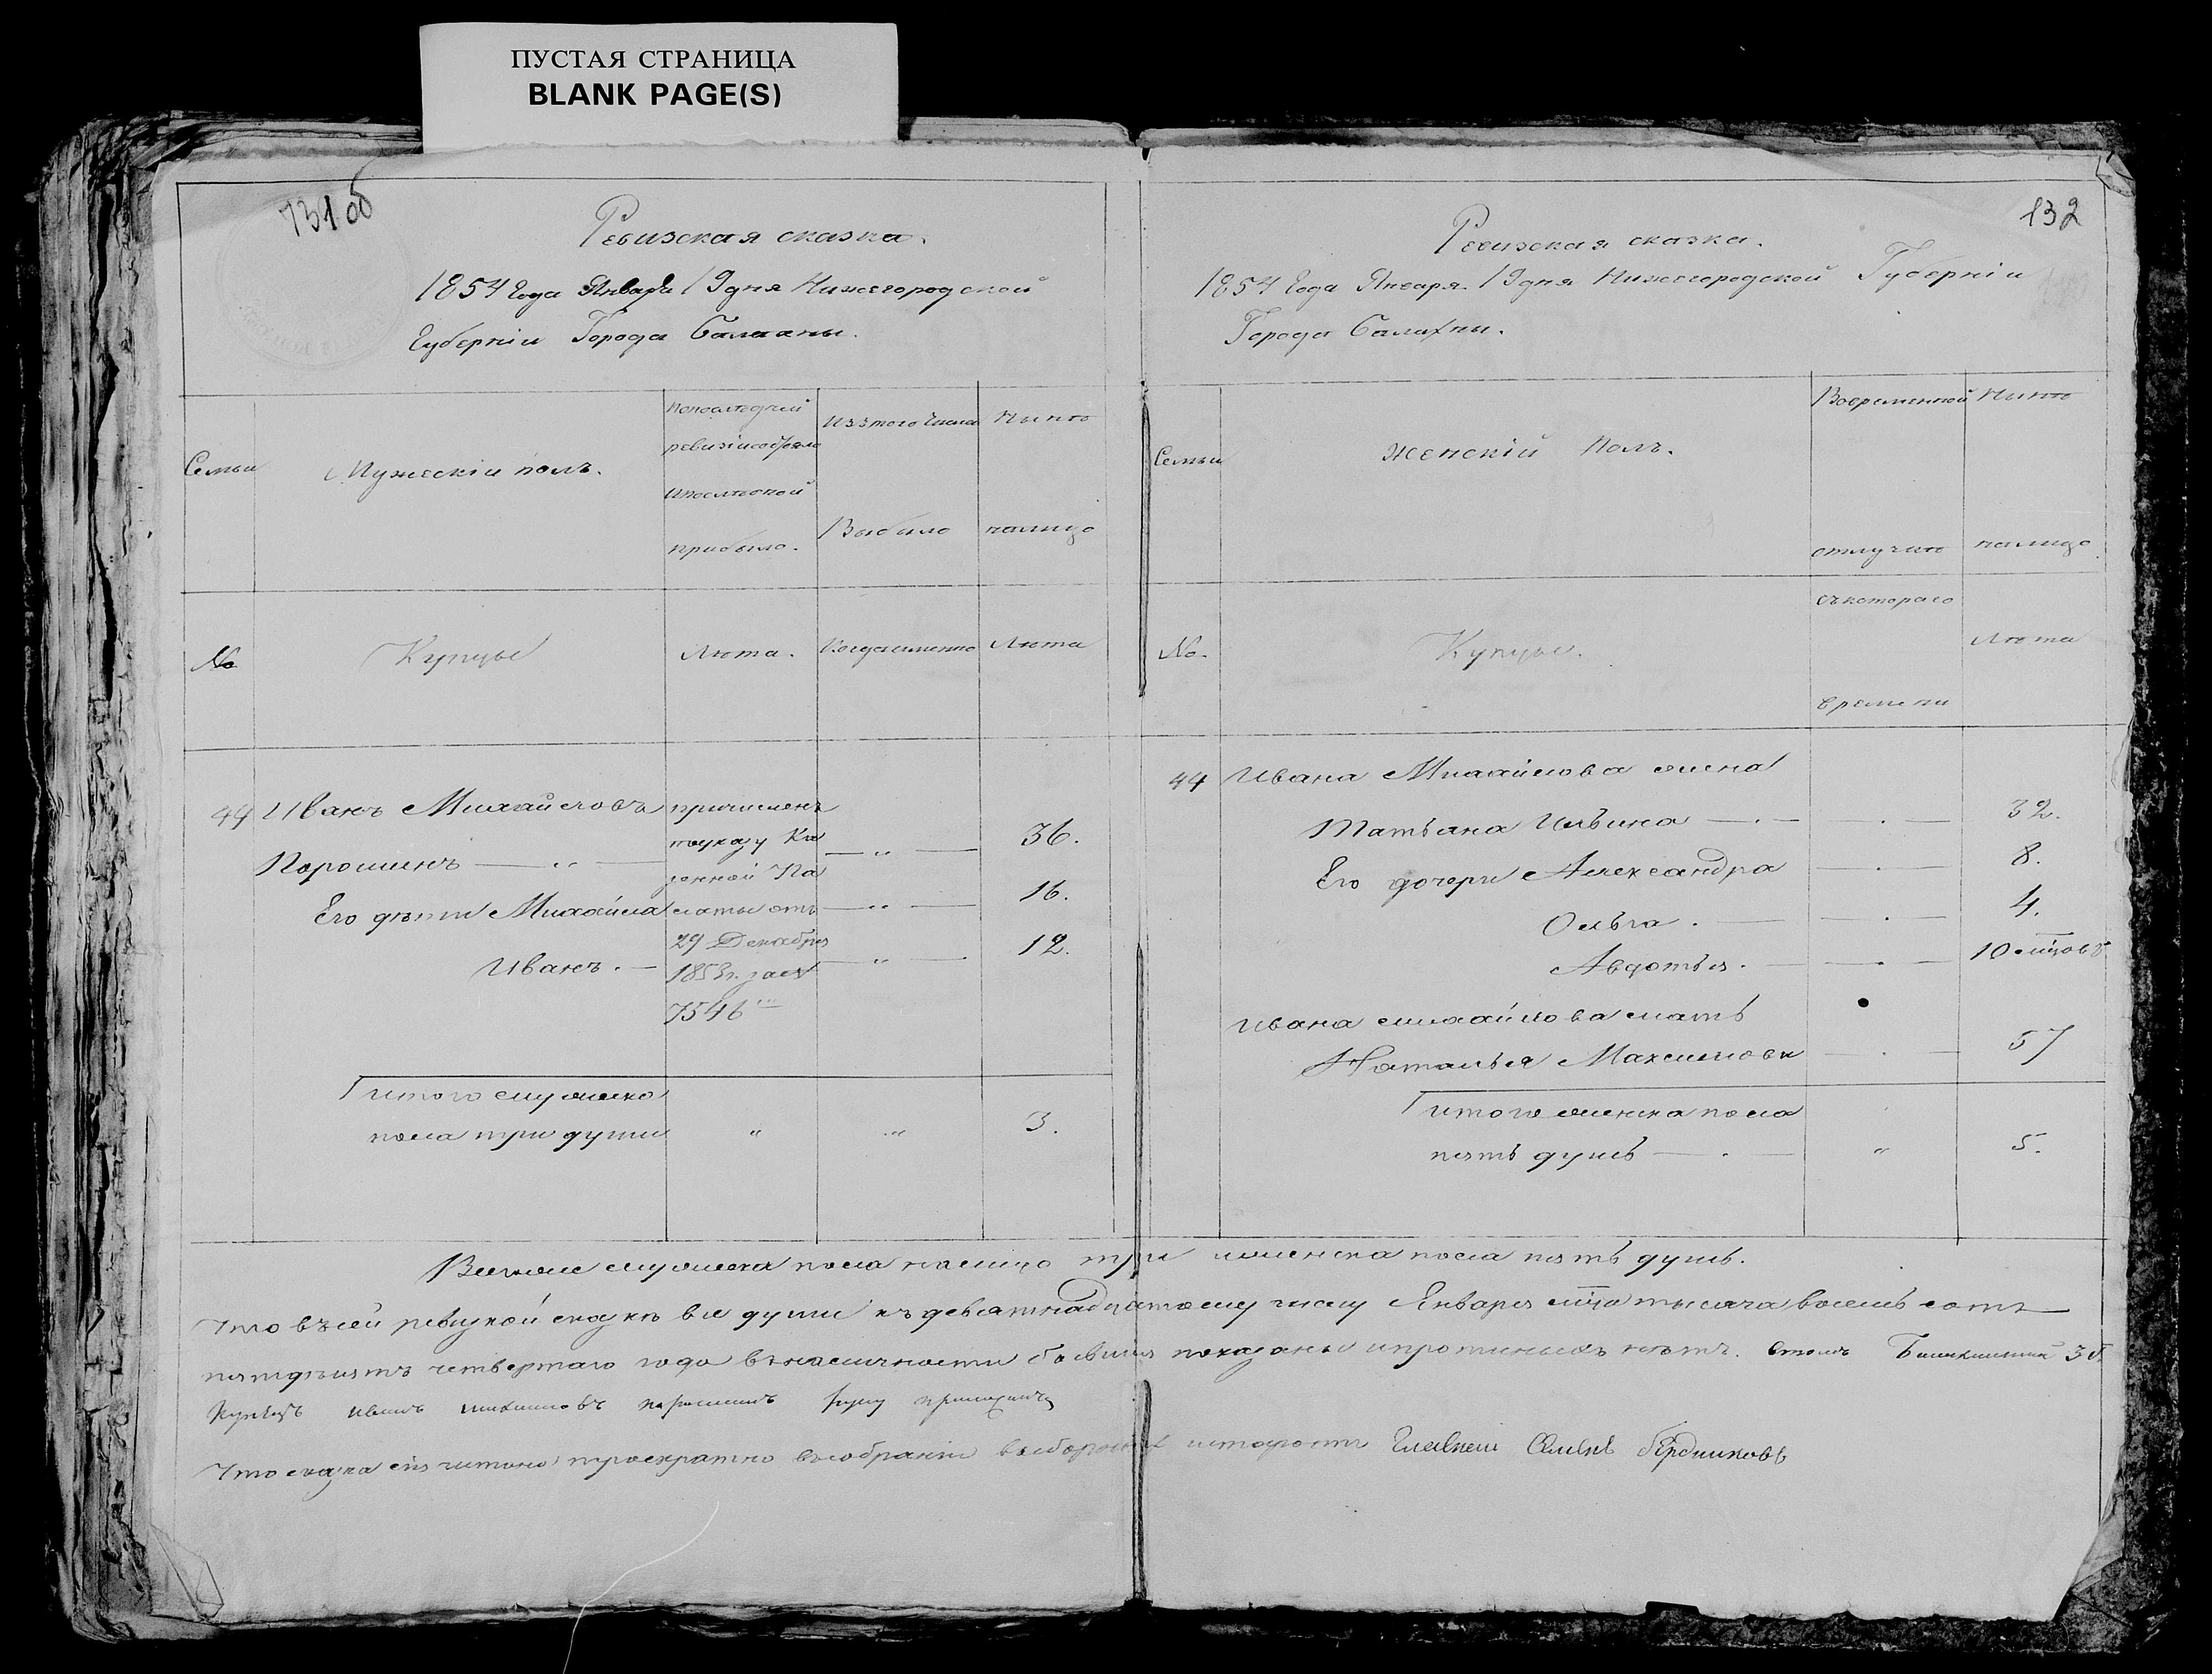 ПУСТАЯ СТРАНИЦА
BLANK PAGE(S)
131 об
Ревизская сказка.
1854 Года Января 19 дня Нижегородской
Губерніи Города Балахны.
Семьи
Мужескій полъ.
Попоследней
ревизіи состояло
ипослетой
прибыло.
Изэтого числа
Выбыло
Ныне
налицо
№
Купцы
Лета.
Когдаименно
Лета
44 Иванъ Михайловъ
Порошинъ — „ — 36.
Его дети Михайла — „ — 16.
Иванъ. — „ — 12.
причисленъ
поуказу Ка
зенной Па
латы отъ
29 Декабря
1853г. за №
7546
Итого мужеска
пола три души „ „ 3.
132
Ревизская сказка.
1854 Года Января 19 дня Нижегородской Губерніи
Города Балахны.
Семьи
Женскій Полъ.
Вовременной
отлучке
Ныне
налицо
№.
Купцы.
съкотораго
времени
Лета
44 Ивана Михайлова жена
Татьяна Ильина — . — 32.
Его дочери Александра — . — 8.
Ольга . — . — 4.
Авдотья . — . — 10 мцовъ
Ивана михайлова мать
Наталья Максимова — . — 57
Итого женска пола
пять душъ — . — „ 5.
мужеска пола налицо три иженска пола пять душъ.
Что въсей ревизкой скаске все души къ девятнадцатому числу Января мца тысяча восемь сотъ
пятдесятъ четвертаго года вналичности бывшия показаны ипропиныхъ нетъ. Втомъ
Купецъ иванъ михаиловъ парошинъ руку приложилъ
Что сказка сия читана троекратно всобраніи втомъ Семенъ Бердниковъ